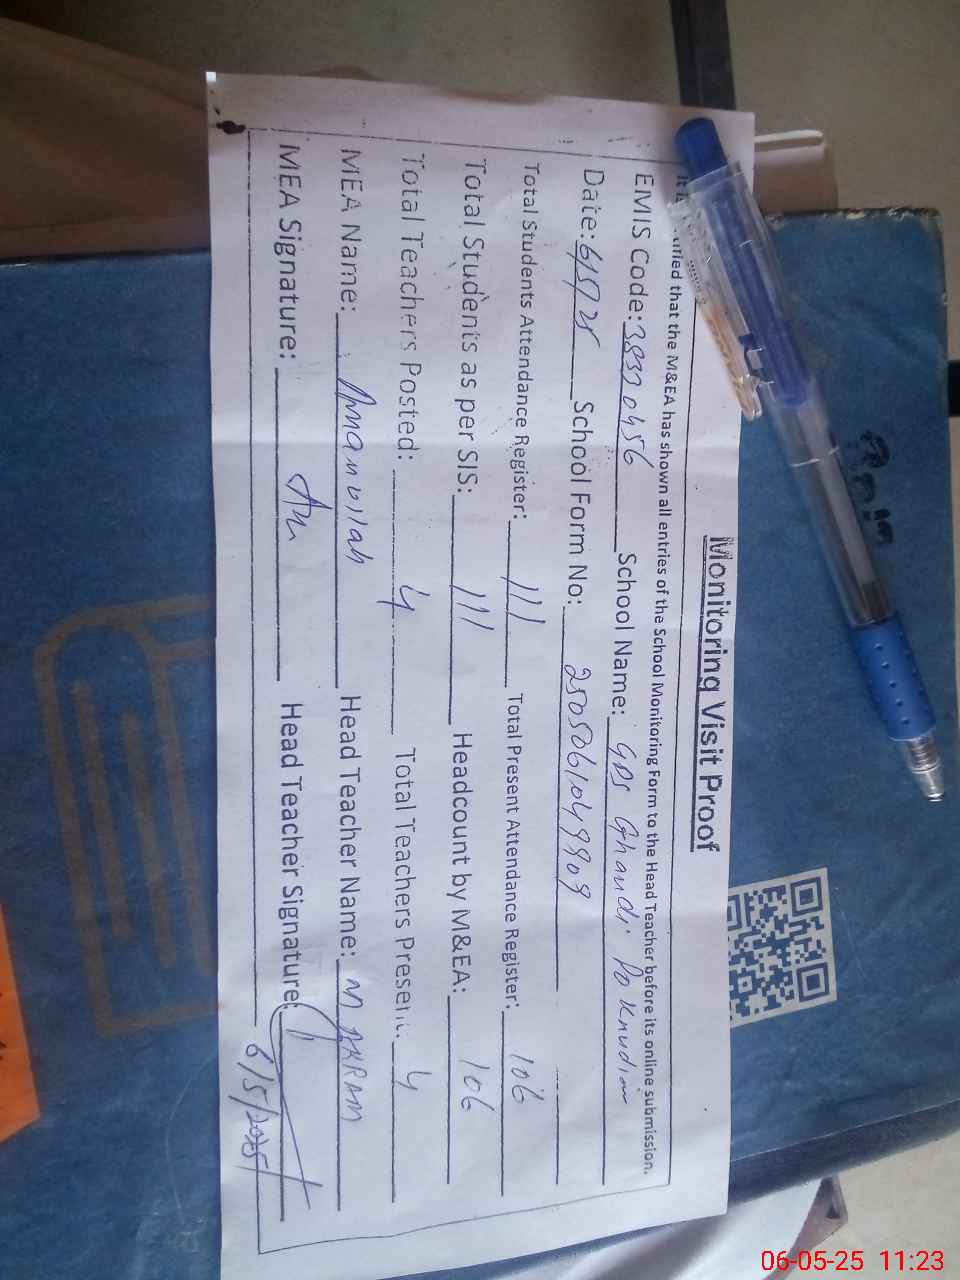 Monitoring Visit Proof
It is certified that the M&EA has shown all entries of the School Monitoring Form to the Head Teacher before its online submission.
EMIS Code: 38330456 School Name: GPS Ghandi
Date: 6/5/25 School Form No: 2505061049909
Total Students Attendance Register: 111 Total Present Attendance Register: 106
Total Students as per SIS: 111 Headcount by M&EA: 106
Total Teachers Posted: 4 Total Teachers Present: 4
MEA Name: Amanullah Head Teacher Name: M AKRAM
MEA Signature: Head Teacher Signature:
6/5/2025
06-05-25 11:23